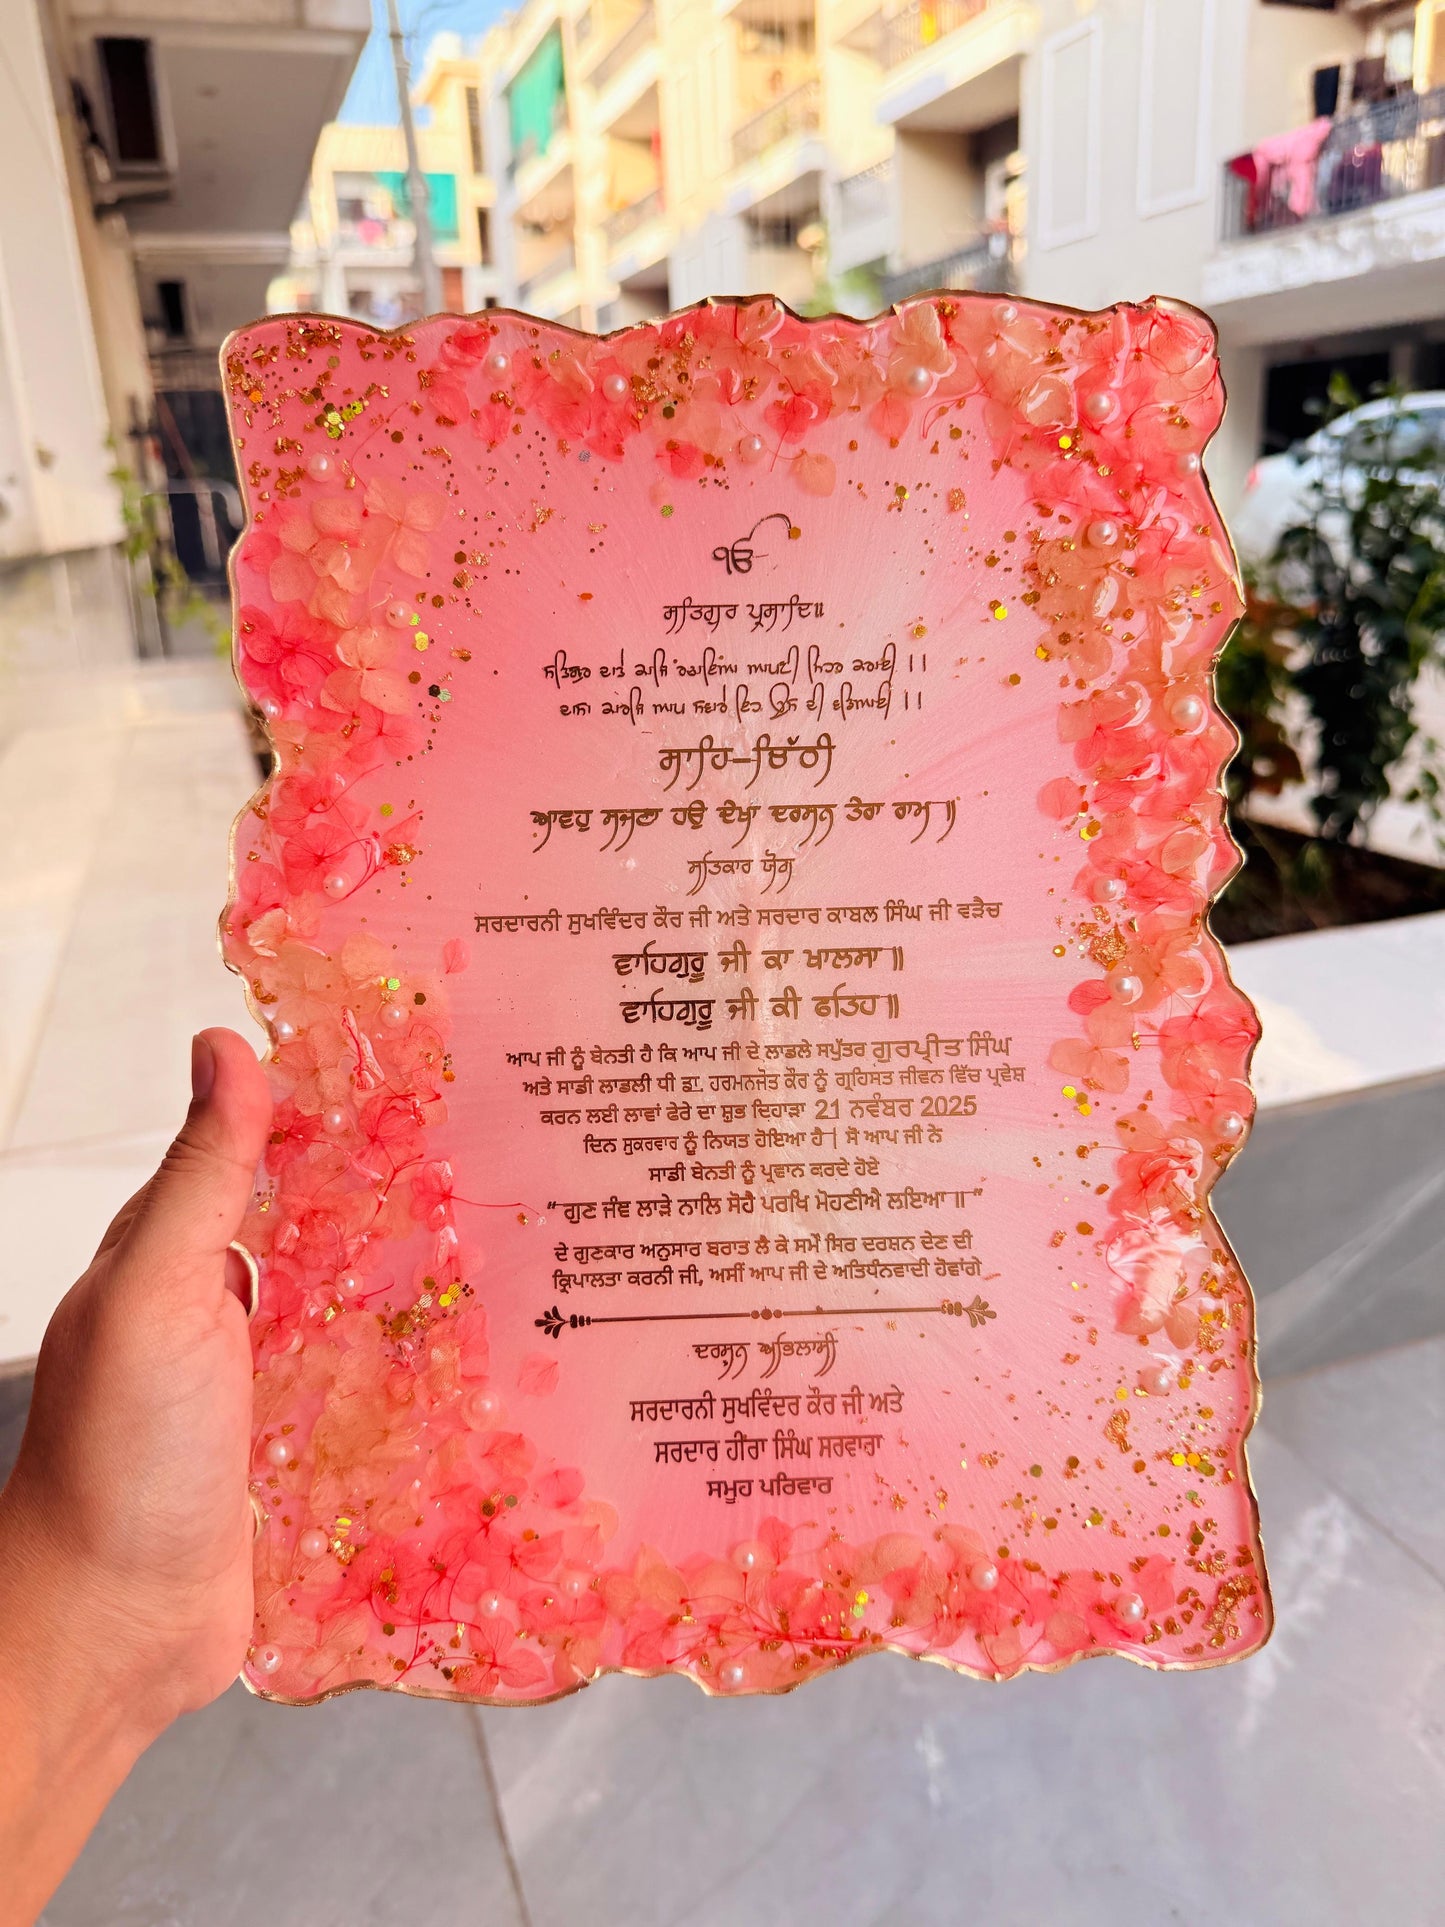 ੴ
ਸਤਿਗੁਰ ਪ੍ਰਸਾਦਿ॥
ਸਤਿਗੁਰ ਦਾਤੇ ਕਾਜਿ ਰਚਾਇਆ ਆਪਣੀ ਮਿਹਰ ਕਰਾਈ ।।
ਦਾਸਾ ਕਾਰਜਿ ਆਪ ਸਵਾਰੇ ਇਹ ਉਸ ਦੀ ਵਡਿਆਈ ।।
ਸਾਹਿ-ਚਿੱਠੀ
ਆਵਹੁ ਸਜਣਾ ਹਉ ਦੇਖਾ ਦਰਸਨ ਤੇਰਾ ਰਾਮ ॥
ਸਤਿਕਾਰ ਯੋਗ
ਸਰਦਾਰਨੀ ਸੁਖਵਿੰਦਰ ਕੌਰ ਜੀ ਅਤੇ ਸਰਦਾਰ ਕਾਬਲ ਸਿੰਘ ਜੀ ਵੜੈਚ
ਵਾਹਿਗੁਰੂ ਜੀ ਕਾ ਖਾਲਸਾ ॥
ਵਾਹਿਗੁਰੂ ਜੀ ਕੀ ਫਤਿਹ ॥
ਆਪ ਜੀ ਨੂੰ ਬੇਨਤੀ ਹੈ ਕਿ ਆਪ ਜੀ ਦੇ ਲਾਡਲੇ ਸਪੁੱਤਰ ਗੁਰਪ੍ਰੀਤ ਸਿੰਘ
ਅਤੇ ਸਾਡੀ ਲਾਡਲੀ ਧੀ ਡਾ. ਹਰਮਨਜੋਤ ਕੌਰ ਨੂੰ ਗ੍ਰਹਿਸਤ ਜੀਵਨ ਵਿੱਚ ਪ੍ਰਵੇਸ਼
ਕਰਨ ਲਈ ਲਾਵਾਂ ਫੇਰੇ ਦਾ ਸ਼ੁਭ ਦਿਹਾੜਾ 21 ਨਵੰਬਰ 2025
ਦਿਨ ਸੁਕਰਵਾਰ ਨੂੰ ਨਿਯਤ ਹੋਇਆ ਹੈ | ਸੋ ਆਪ ਜੀ ਨੇ
ਸਾਡੀ ਬੇਨਤੀ ਨੂੰ ਪ੍ਰਵਾਨ ਕਰਦੇ ਹੋਏ
“ ਗੁਣ ਜੰਞ ਲਾੜੇ ਨਾਲਿ ਸੋਹੈ ਪਰਖਿ ਮੋਹਣੀਐ ਲਇਆ ॥ ”
ਦੇ ਗੁਣਕਾਰ ਅਨੁਸਾਰ ਬਰਾਤ ਲੈ ਕੇ ਸਮੇਂ ਸਿਰ ਦਰਸ਼ਨ ਦੇਣ ਦੀ
ਕ੍ਰਿਪਾਲਤਾ ਕਰਨੀ ਜੀ, ਅਸੀਂ ਆਪ ਜੀ ਦੇ ਅਤਿਧੰਨਵਾਦੀ ਹੋਵਾਂਗੇ
ਦਰਸ੍ਨ ਅਭਿਲਾਸੀ
ਸਰਦਾਰਨੀ ਸੁਖਵਿੰਦਰ ਕੌਰ ਜੀ ਅਤੇ
ਸਰਦਾਰ ਹੀਂਰਾ ਸਿੰਘ ਸਰਵਾਰਾ
ਸਮੂਹ ਪਰਿਵਾਰ